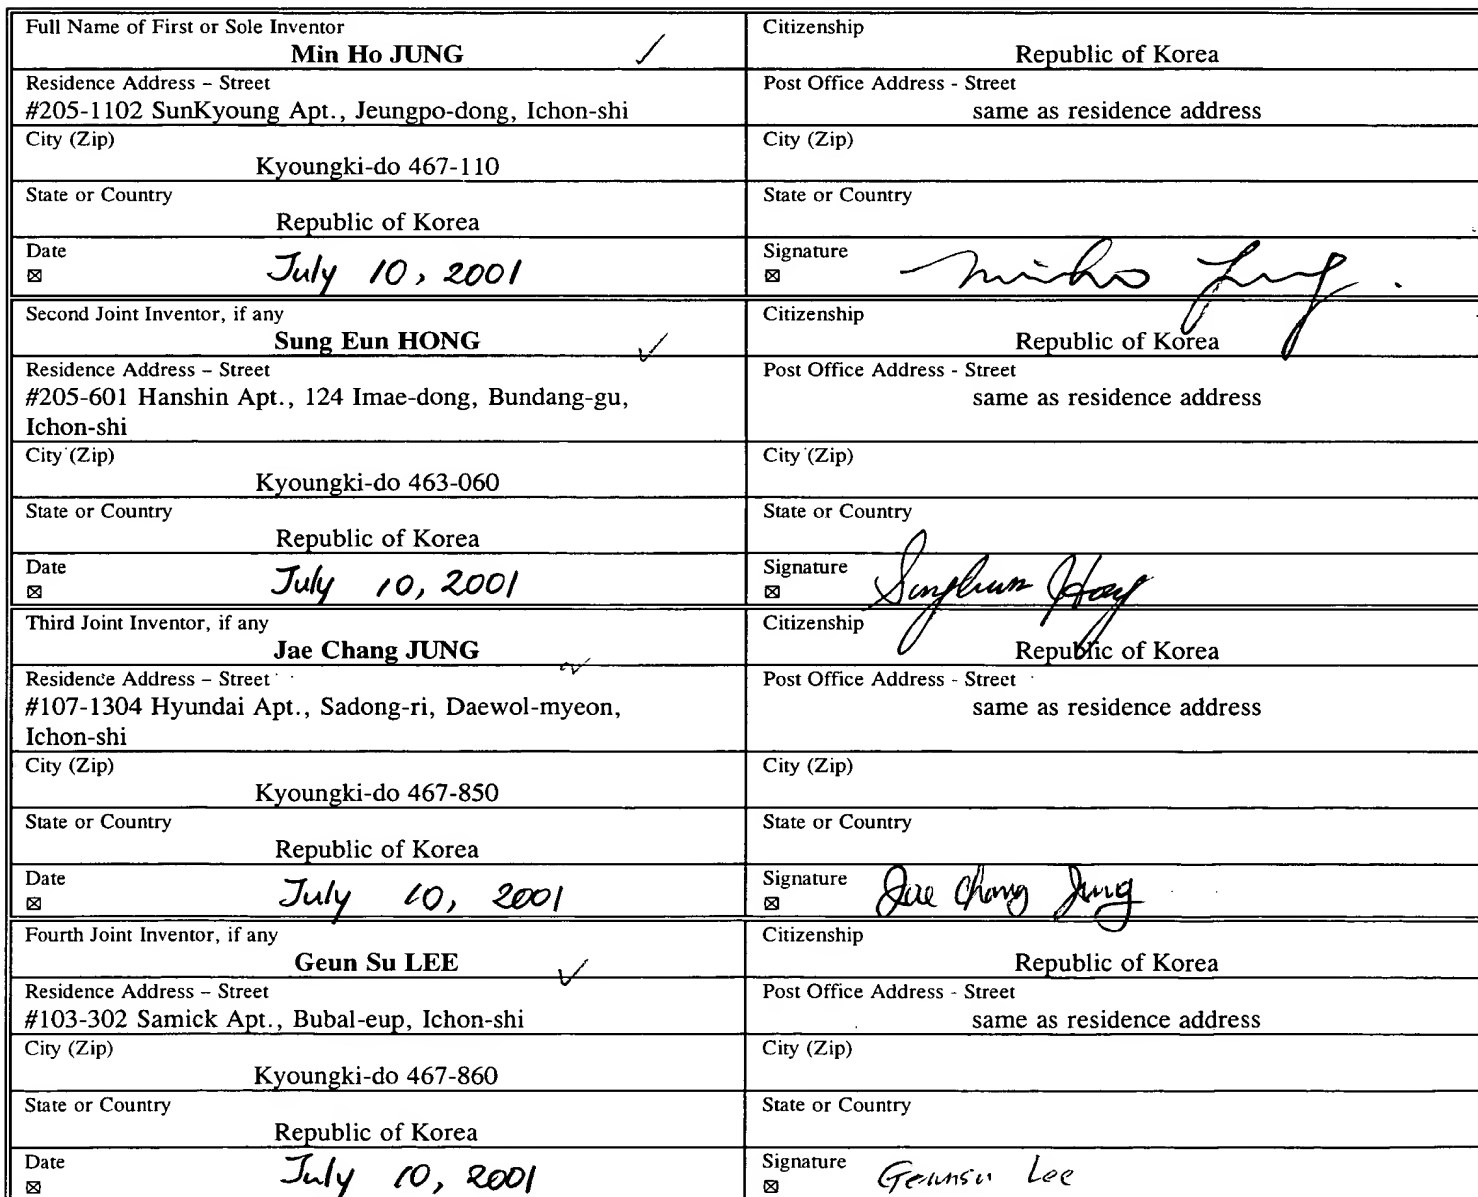 Full Name of First or Sole Inventor
Min Ho JUNG
Citizenship
Republic of Korea
Residence Address – Street
#205-1102 SunKyoung Apt., Jeungpo-dong, Ichon-shi
Post Office Address - Street
same as residence address
City (Zip)
Kyoungki-do 467-110
City (Zip)
State or Country
Republic of Korea
State or Country
Date
July 10, 2001
Signature
minho Jung.
Second Joint Inventor, if any
Sung Eun HONG
Citizenship
Republic of Korea
Residence Address – Street
#205-601 Hanshin Apt., 124 Imae-dong, Bundang-gu,
Ichon-shi
Post Office Address - Street
same as residence address
City (Zip)
Kyoungki-do 463-060
City (Zip)
State or Country
Republic of Korea
State or Country
Date
July 10, 2001
Signature
Third Joint Inventor, if any
Jae Chang JUNG
Citizenship
Republic of Korea
Residence Address – Street
#107-1304 Hyundai Apt., Sadong-ri, Daewol-myeon,
Ichon-shi
Post Office Address - Street
same as residence address
City (Zip)
Kyoungki-do 467-850
City (Zip)
State or Country
Republic of Korea
State or Country
Date
July 10, 2001
Signature
Jae Chang Jung
Fourth Joint Inventor, if any
Geun Su LEE
Citizenship
Republic of Korea
Residence Address – Street
#103-302 Samick Apt., Bubal-eup, Ichon-shi
Post Office Address - Street
same as residence address
City (Zip)
Kyoungki-do 467-860
City (Zip)
State or Country
Republic of Korea
State or Country
Date
July 10, 2001
Signature
Geunsu Lee